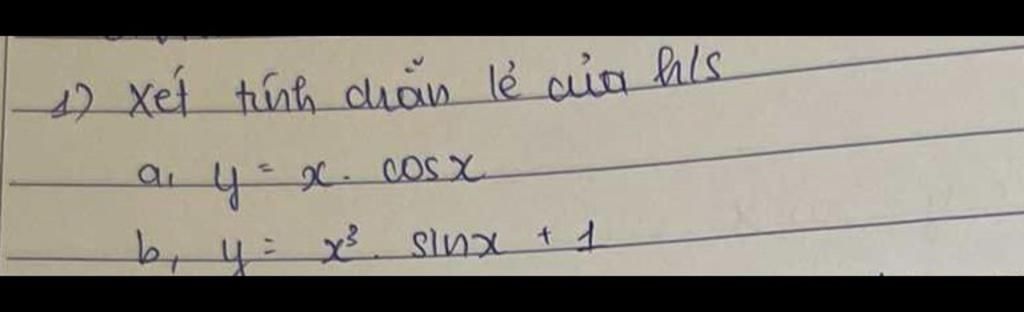 1) Xét tính chẵn lẻ của h/s
a, y = x. cosx
b, y = x³. sinx + 1